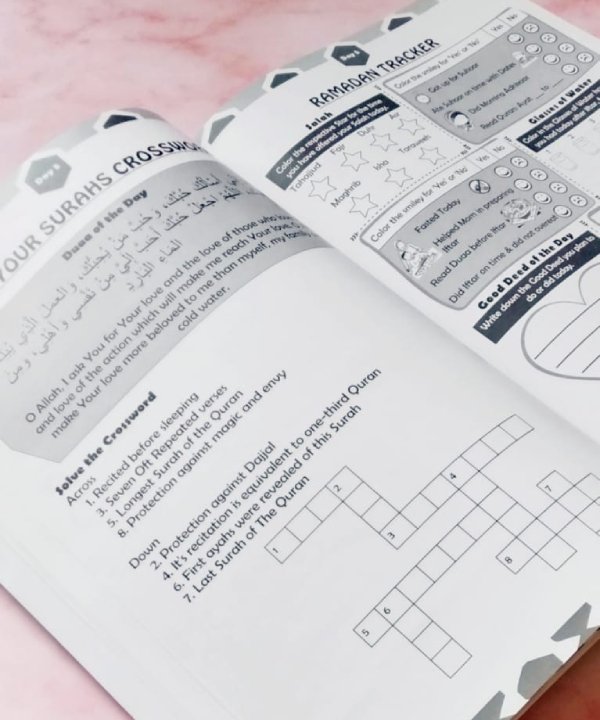 Day 8
YOUR SURAHS CROSSWO
Duaa of the Day
O Allah, I ask You for Your love and the love of those who lov
and love of the action which will make me reach Your love, O
make Your love more beloved to me than myself, my family
cold water.
Solve the Crossword
Across
1. Recited before sleeping
3. Seven Oft Repeated verses
5. Longest Surah of the Quran
8. Protection against magic and envy
Down
2. Protection against Dajjal
4. It's recitation is equivalent to one-third Quran
6. First ayahs were revealed of this Surah
7. Last Surah of The Quran
1
2
3
4
5
6
7
8
Day 8
RAMADAN TRACKER
Salah
Color the respective Star for the time
you have offered your Salah today.
Tahajjud Fajr Duhr Asr
Maghrib Isha Taraweeh
Color the smiley for 'Yes' or 'No' Yes No
Got up for Suhoor
Ate Suhoor on time with Dates
Did Morning Adhkaar
Read Quran: Ayat ___ to ___
Color the smiley for 'Yes' or 'No' Yes No
Fasted Today
Helped Mom in preparing
Iftar
Read Duaa before Iftar
Did Iftar on time & did not overeat
Glasses of Water
Good Deed of the Day
Write down the Good Deed you plan to
do or did today.